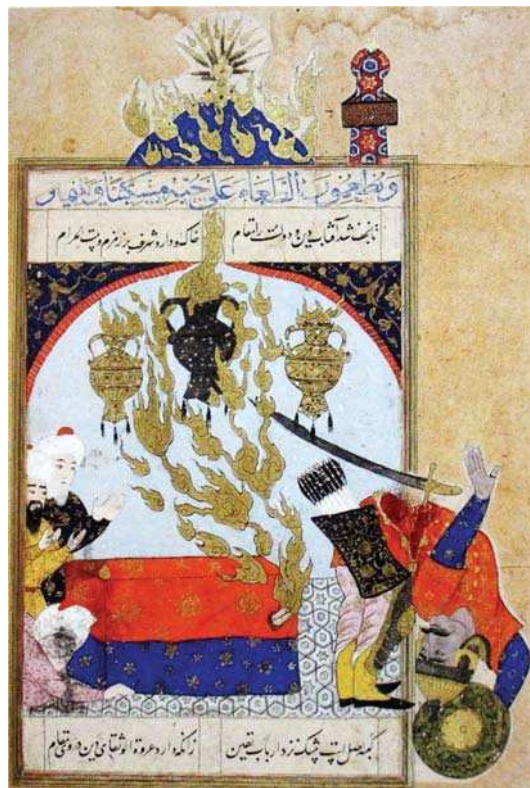 ويطعمون الطعام على حبه مسكينا ويتيما
تا نجف شد آفتاب دین و دولت را مقام خاک او دارد شرف بر زمزم و بیت الحرام
کعبه اصل است بی شک نزد ارباب یقین زانکه دارد عروة الوثقای دین در وی مقام